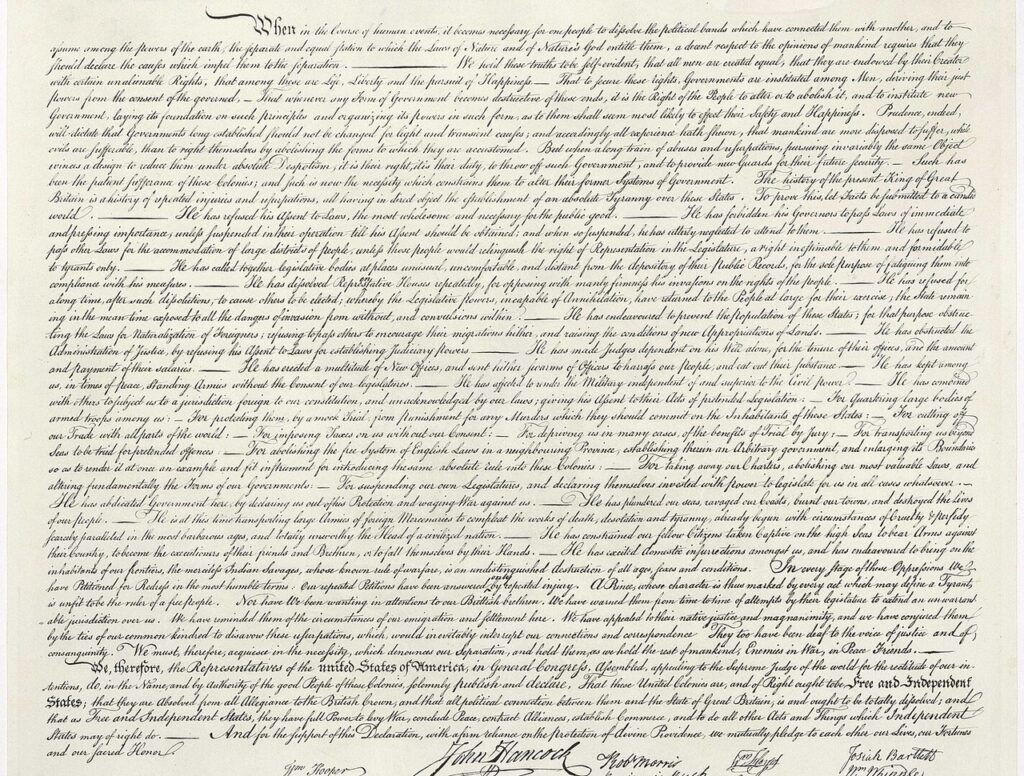 When in the Course of human events, it becomes necessary for one people to dissolve the political bands which have connected them with another, and to
assume among the powers of the earth, the separate and equal station to which the Laws of Nature and of Nature's God entitle them, a decent respect to the opinions of mankind requires that they
should declare the causes which impel them to the separation. ——— We hold these truths to be self-evident, that all men are created equal, that they are endowed by their Creator
with certain unalienable Rights, that among these are Life, Liberty and the pursuit of Happiness — That to secure these rights, Governments are instituted among Men, deriving their just
powers from the consent of the governed, — That whenever any Form of Government becomes destructive of these ends, it is the Right of the People to alter or to abolish it, and to institute new
Government, laying its foundation on such principles and organizing its powers in such form, as to them shall seem most likely to effect their Safety and Happiness. Prudence, indeed,
will dictate that Governments long established should not be changed for light and transient causes; and accordingly all experience hath shewn, that mankind are more disposed to suffer, while
evils are sufferable, than to right themselves by abolishing the forms to which they are accustomed. But when a long train of abuses and usurpations, pursuing invariably the same Object
evinces a design to reduce them under absolute Despotism, it is their right, it is their duty, to throw off such Government, and to provide new Guards for their future security. — Such has
been the patient sufferance of these Colonies; and such is now the necessity which constrains them to alter their former Systems of Government. The history of the present King of Great
Britain is a history of repeated injuries and usurpations, all having in direct object the establishment of an absolute Tyranny over these States. To prove this, let Facts be submitted to a candid
world. ——— He has refused his Assent to Laws, the most wholesome and necessary for the public good. ——— He has forbidden his Governors to pass Laws of immediate
and pressing importance, unless suspended in their operation till his Assent should be obtained; and when so suspended, he has utterly neglected to attend to them. ——— He has refused to
pass other Laws for the accommodation of large districts of people, unless those people would relinquish the right of Representation in the Legislature, a right inestimable to them and formidable
to tyrants only. ——— He has called together legislative bodies at places unusual, uncomfortable, and distant from the depository of their Public Records, for the sole purpose of fatiguing them into
compliance with his measures. ——— He has dissolved Representative Houses repeatedly, for opposing with manly firmness his invasions on the rights of the people. ——— He has refused for
a long time, after such dissolutions, to cause others to be elected; whereby the Legislative powers, incapable of Annihilation, have returned to the People at large for their exercise; the State remain
ing in the mean time exposed to all the dangers of invasion from without, and convulsions within. ——— He has endeavoured to prevent the population of these States; for that purpose obstruc-
ting the Laws for Naturalization of Foreigners; refusing to pass others to encourage their migrations hither, and raising the conditions of new Appropriations of Lands. ——— He has obstructed the
Administration of Justice, by refusing his Assent to Laws for establishing Judiciary powers ——— He has made Judges dependent on his Will alone, for the tenure of their offices, and the amount
and payment of their salaries. ——— He has erected a multitude of New Offices, and sent hither swarms of Officers to harrass our people, and eat out their substance. ——— He has kept among
us, in times of peace, Standing Armies without the Consent of our legislatures. ——— He has affected to render the Military independent of and superior to the Civil power. ——— He has combined
with others to subject us to a jurisdiction foreign to our constitution, and unacknowledged by our laws; giving his Assent to their Acts of pretended Legislation: — For Quartering large bodies of
armed troops among us: — For protecting them, by a mock Trial, from punishment for any Murders which they should commit on the Inhabitants of these States: — For cutting off
our Trade with all parts of the world: — For imposing Taxes on us without our Consent: — For depriving us in many cases, of the benefits of Trial by Jury: — For transporting us beyond
Seas to be tried for pretended offences: — For abolishing the free System of English Laws in a neighbouring Province, establishing therein an Arbitrary government, and enlarging its Boundaries
so as to render it at once an example and fit instrument for introducing the same absolute rule into these Colonies: — For taking away our Charters, abolishing our most valuable Laws, and
altering fundamentally the Forms of our Governments: — For suspending our own Legislatures, and declaring themselves invested with power to legislate for us in all cases whatsoever. —
He has abdicated Government here, by declaring us out of his Protection and waging War against us. ——— He has plundered our seas, ravaged our Coasts, burnt our towns, and destroyed the Lives
of our people. — He is at this time transporting large Armies of foreign Mercenaries to compleat the works of death, desolation and tyranny, already begun with circumstances of Cruelty & perfidy
scarcely paralleled in the most barbarous ages, and totally unworthy the Head of a civilized nation. — He has constrained our fellow Citizens taken Captive on the high Seas to bear Arms against
their Country, to become the executioners of their friends and Brethren, or to fall themselves by their Hands. — He has excited domestic insurrections amongst us, and has endeavoured to bring on the
inhabitants of our frontiers, the merciless Indian Savages, whose known rule of warfare, is an undistinguished destruction of all ages, sexes and conditions. In every stage of these Oppressions We
have Petitioned for Redress in the most humble terms: Our repeated Petitions have been answered only by repeated injury. A Prince, whose character is thus marked by every act which may define a Tyrant,
is unfit to be the ruler of a free people. Nor have We been wanting in attentions to our Brittish brethren. We have warned them from time to time of attempts by their legislature to extend an unwarrant-
able jurisdiction over us. We have reminded them of the circumstances of our emigration and settlement here. We have appealed to their native justice and magnanimity, and we have conjured them
by the ties of our common kindred to disavow these usurpations, which, would inevitably interrupt our connections and correspondence They too have been deaf to the voice of justice and of
consanguinity. We must, therefore, acquiesce in the necessity, which denounces our Separation, and hold them, as we hold the rest of mankind, Enemies in War, in Peace Friends. —
We, therefore, the Representatives of the united States of America, in General Congress, Assembled, appealing to the Supreme Judge of the world for the rectitude of our in-
tentions, do, in the Name, and by Authority of the good People of these Colonies, solemnly publish and declare, That these United Colonies are, and of Right ought to be Free and Independent
States; that they are Absolved from all Allegiance to the British Crown, and that all political connection between them and the State of Great Britain, is and ought to be totally dissolved; and
that as Free and Independent States, they have full Power to levy War, conclude Peace, contract Alliances, establish Commerce, and to do all other Acts and Things which Independent
States may of right do. — And for the support of this Declaration, with a firm reliance on the protection of divine Providence, we mutually pledge to each other our Lives, our Fortunes
and our sacred Honor.
Wm Hooper John Hancock Robt Morris Josiah Bartlett
Wm Whipple